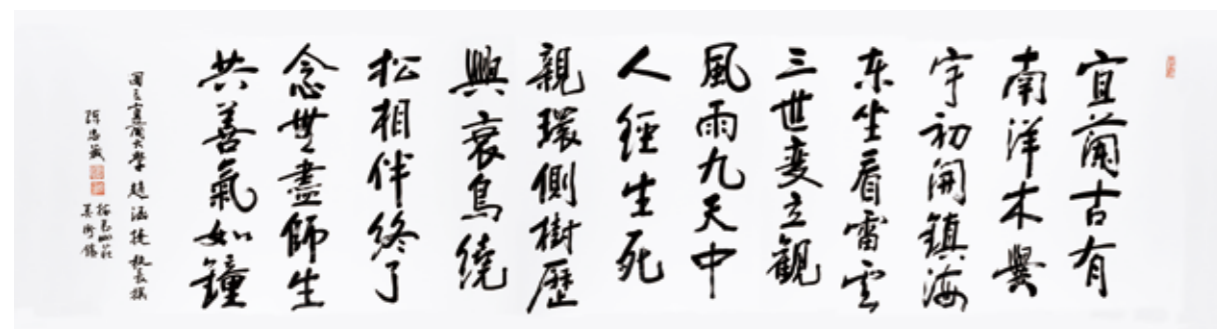 宜蘭古有
南洋木黌
宇初開鎮海
东坐看雷雲
三世变立観
風雨九天中
人經生死
親環側樹歷
興衰鳥繞
松相伴終了
念無盡師生
共善氣如鐘
國立宜蘭大學 趙涵捷 校長撰
陳忠藏
山莊
美術館